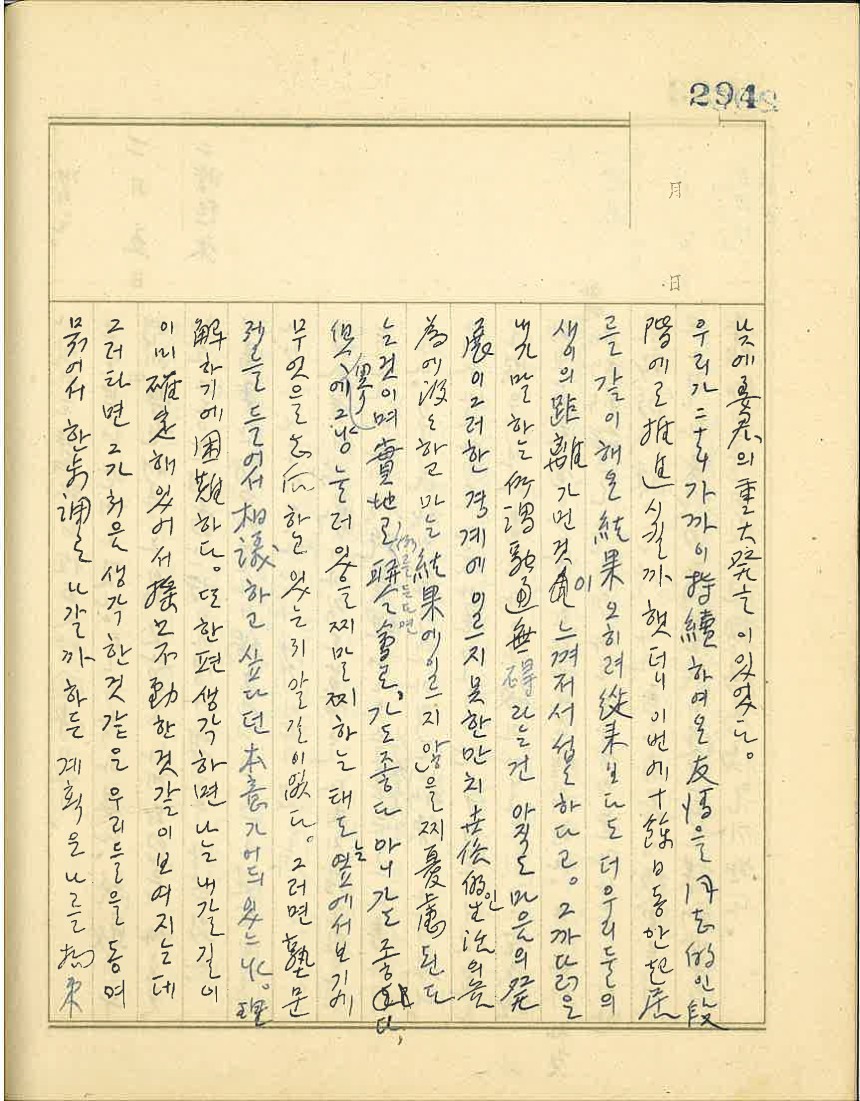 294
月
日
낮에 姜君의 重大發言이 있었다.
우리가 二十年 가까이 持續하여온 友情을 同志的인 段
階에로 推進시킬까 했더니 이번에 十餘日 동안 起居
를 같이 해온 結果 오히려 從來보다도 더 우리들의
새이의 距離가 먼 것이 느껴저서 섭섭하다고. 그 까닭은
내가 말하는 所謂 融通無碍라는 건 아직도 마음의 發
展이 그러한 경계에 이르지 못한 만치 世俗的인 生活의
為에 沒하고 마는 結果에 이르지 않을찌 憂慮된다
는 것이며 實地로 例를 든다면 가도 좋다 아니 가도 좋다,
에 그냥 눌러 있을찌 말찌 하는 태도는 옆에서 보기에
무엇을 하고 있는지 알 길이 없다. 그러면 塾 문
제를 들어서 相議하고 싶다던 本意가 어듸 있느냐. 理
解하기에 困難하다. 또 한편 생각하면 나는 내 갈 길이
이미 確定해 있어서 搖之不動한 것 같이 보여지는데
그러타면 그가 처음 생각한 것 같은 우리들을 동여
묶어서 한 步調로 나갈까 하든 계획은 나를 拘束